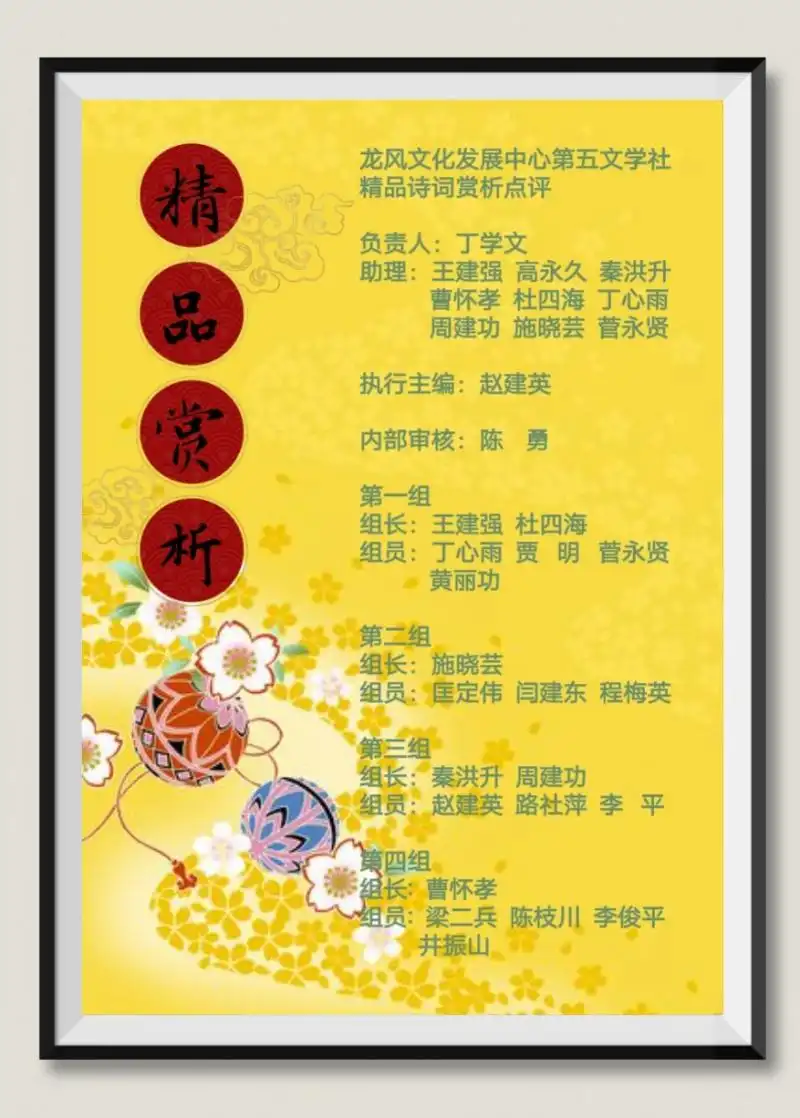 精品赏析
龙风文化发展中心第五文学社
精品诗词赏析点评
负责人：丁学文
助理：王建强 高永久 秦洪升
曹怀孝 杜四海 丁心雨
周建功 施晓芸 菅永贤
执行主编：赵建英
内部审核：陈 勇
第一组
组长：王建强 杜四海
组员：丁心雨 贾 明 菅永贤
黄丽功
第二组
组长：施晓芸
组员：匡定伟 闫建东 程梅英
第三组
组长：秦洪升 周建功
组员：赵建英 路社萍 李 平
第四组
组长：曹怀孝
组员：梁二兵 陈枝川 李俊平
井振山